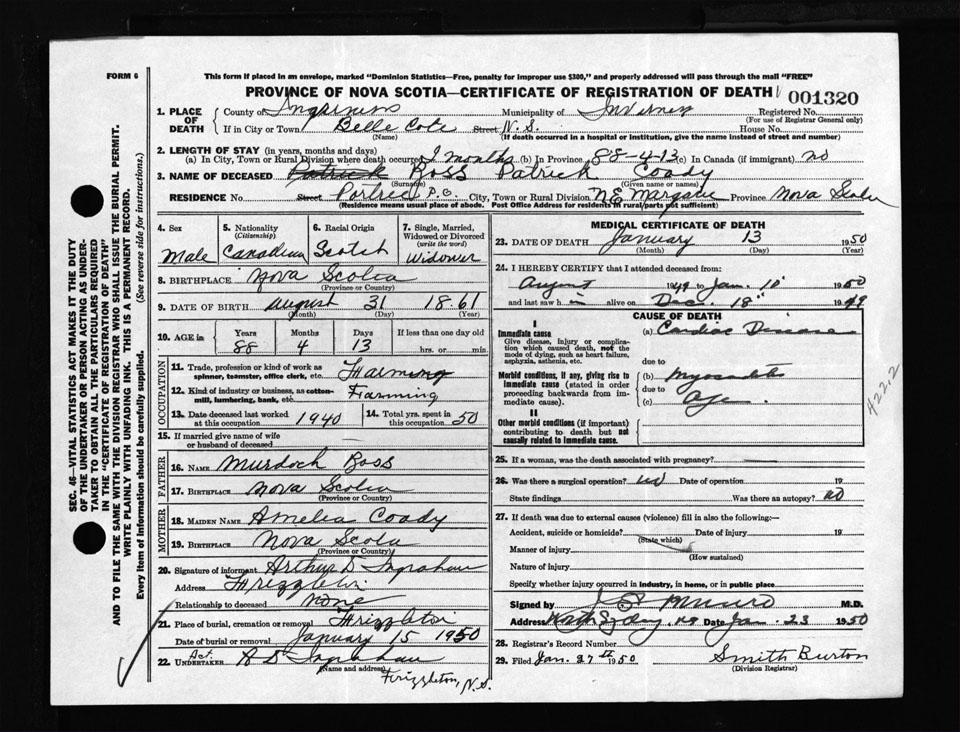 FORM 6
This form if placed in an envelope, marked "Dominion Statistics—Free, penalty for improper use $300," and properly addressed will pass through the mail "FREE"
PROVINCE OF NOVA SCOTIA—CERTIFICATE OF REGISTRATION OF DEATH
001320
1. PLACE OF DEATH
County of Inverness Municipality of Inverness Registered No.
(For use of Registrar General only)
If in City or Town Belle Cote Street N.S. House No.
(Name) (If death occurred in a hospital or institution, give the name instead of street and number)
2. LENGTH OF STAY (in years, months and days)
(a) In City, Town or Rural Division where death occurred months (b) In Province 88-4-13 (c) In Canada (if immigrant) no
3. NAME OF DECEASED Patrick Ross Patrick Coady
(Surname) (Given name or names)
RESIDENCE No Street P.O. City, Town or Rural Division N.E. Margaree Province Nova Scotia
(Residence means usual place of abode. Post Office Address for residents in rural parts not sufficient)
4. Sex
Male
5. Nationality
(Citizenship)
Canadian
6. Racial Origin
Scotch
7. Single, Married, Widowed or Divorced
(write the word)
Widower
8. BIRTHPLACE Nova Scotia
(Province or Country)
9. DATE OF BIRTH August 31 1861
(Month) (Day) (Year)
10. AGE in
Years Months Days If less than one day old
88 4 13 hrs. or min.
OCCUPATION
11. Trade, profession or kind of work as spinner, teamster, office clerk, etc. Farming
12. Kind of industry or business, as cotton-mill, lumbering, bank, etc. Farming
13. Date deceased last worked at this occupation 1940
14. Total yrs. spent in this occupation 50
15. If married give name of wife or husband of deceased
FATHER
16. NAME Murdoch Ross
17. BIRTHPLACE Nova Scotia
(Province or Country)
MOTHER
18. MAIDEN NAME Amelia Coady
19. BIRTHPLACE Nova Scotia
(Province or Country)
20. Signature of informant Arthur D Ingraham
Address Frizzleton
Relationship to deceased None
21. Place of burial, cremation or removal Frizzleton
Date of burial or removal January 15 1950
22. Act. UNDERTAKER A D Ingraham
(Name and address)
Frizzleton, N.S.
MEDICAL CERTIFICATE OF DEATH
23. DATE OF DEATH January 13 1950
(Month) (Day)
24. I HEREBY CERTIFY that I attended deceased from:
August 1949 to Jan. 10 1950
and last saw h im alive on Dec. 18 1949
CAUSE OF DEATH
I
Immediate cause
Give disease, injury or complication which caused death, not the mode of dying, such as heart failure, asphyxia, asthenia, etc.
(a) Cardiac Disease
due to
Morbid conditions, if any, giving rise to immediate cause (stated in order proceeding backwards from immediate cause).
(b) Myocarditis
due to
(c) Age
II
Other morbid conditions (if important) contributing to death but not causally related to immediate cause.
422.2
25. If a woman, was the death associated with pregnancy?
26. Was there a surgical operation? no Date of operation 19
State findings Was there an autopsy? no
27. If death was due to external causes (violence) fill in also the following:—
Accident, suicide or homicide? Date of injury 19
(State which)
Manner of injury
(How sustained)
Nature of injury
Specify whether injury occurred in industry, in home, or in public place
Signed by J S Munro M.D.
Address North Sydney, NS Date Jan. 23 1950
28. Registrar's Record Number
29. Filed Jan. 27th 1950 Smith Burton
(Division Registrar)
SEC. 46—VITAL STATISTICS ACT MAKES IT THE DUTY
OF THE UNDERTAKER OR PERSON ACTING AS UNDERTAKER TO OBTAIN ALL THE PARTICULARS REQUIRED
IN THE "CERTIFICATE OF REGISTRATION OF DEATH"
AND TO FILE THE SAME WITH THE DIVISION REGISTRAR WHO SHALL ISSUE THE BURIAL PERMIT.
WRITE PLAINLY WITH UNFADING INK. THIS IS A PERMANENT RECORD.
Every item of information should be carefully supplied. (See reverse side for instructions.)